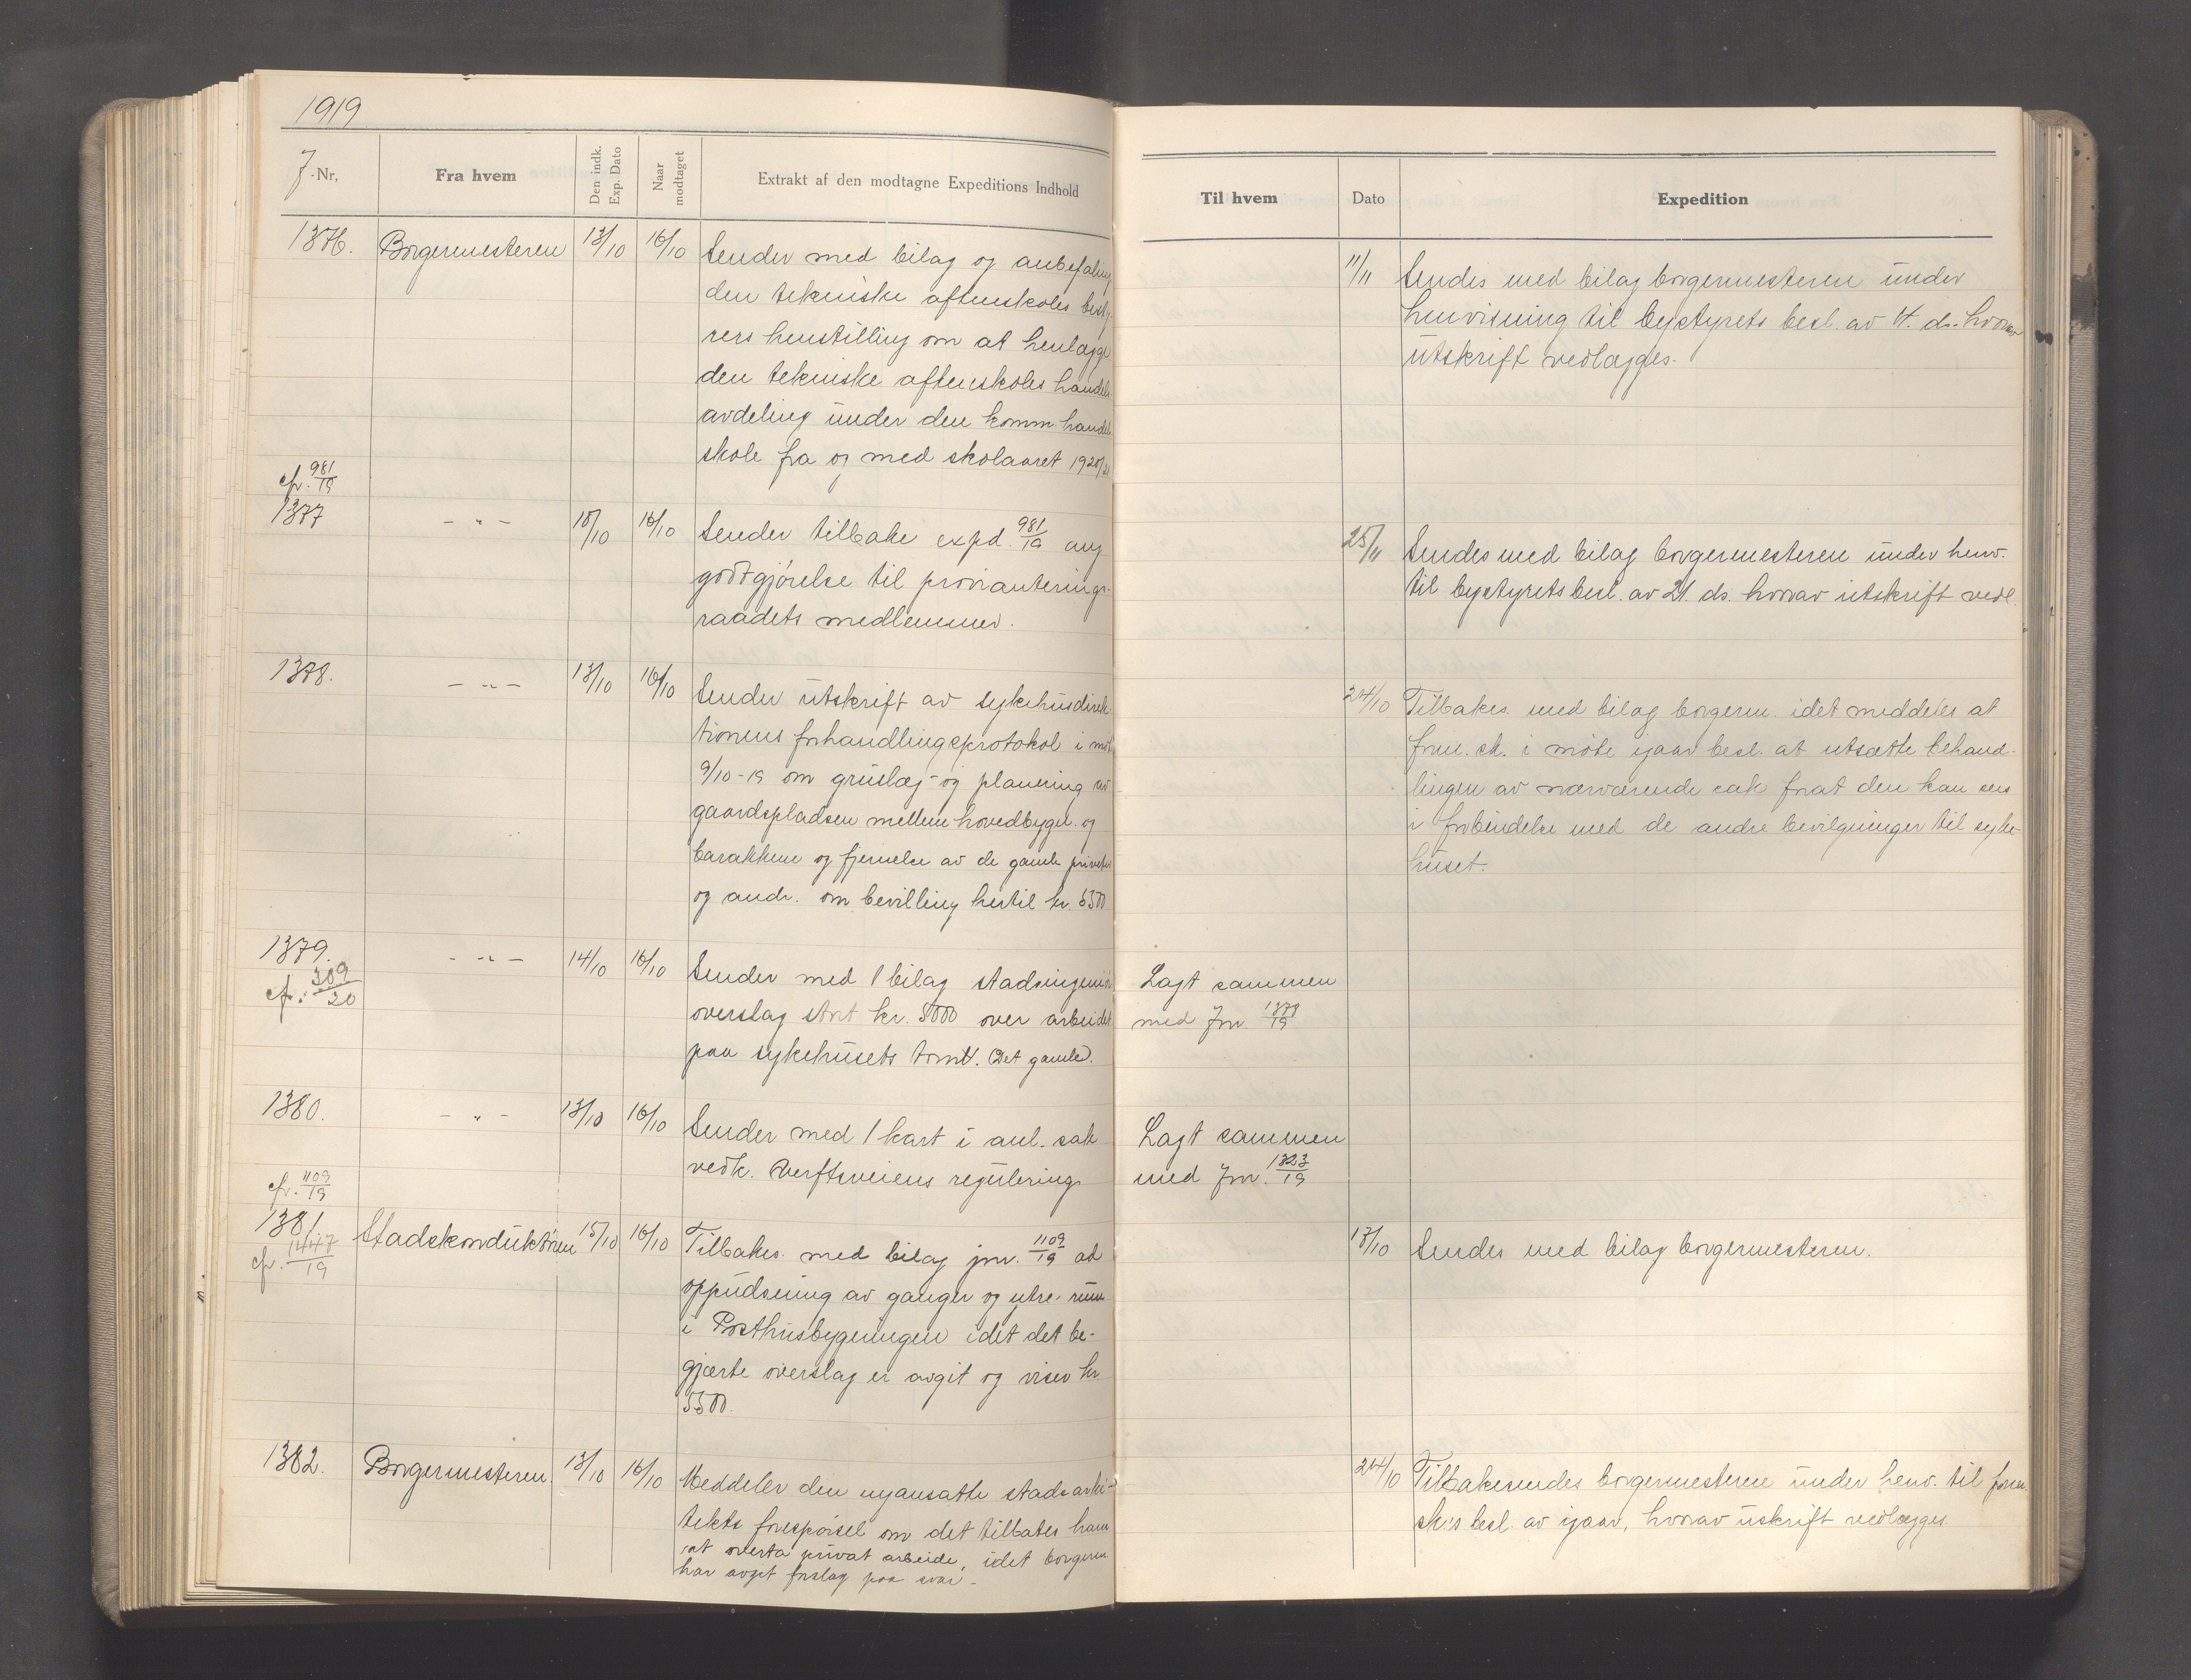 1919
J-Nr,
Fra hvem
Den indk. Exp. Dato
Naar modtaget
Extrakt af den modtagne Expeditions Indhold
Til hvem
Dato
Expedition
1376. Borgermesteren 13/10 16/10 Sender med bilag og anbefaling
den tekniske aftenskoles besty-
rers henstilling om at henlægge
den tekniske aftenskoles handels
avdeling under den komm. handels
skole fra og med skolaaret 1920/21
11/11 Sendes med bilag borgermesteren under
henvisning til bystyrets besl. av 4. ds. hvorav
utskrift vedlægges.
cfr. 981/19
1377 - " - 15/10 16/10 Sender tilbake expd. 981/19 ang
godtgjörelse til provianterings-
raadets medlemmer.
25/11 Sendes med bilag borgermesteren under henv.
til bystyrets besl. av 21. ds. hvorav utskrift vedl.
1378. - " - 13/10 16/10 Sender utskrift av sykehusdirek
tionens forhandlingsprotokol i møte
9/10-19 om gruslæg- og planering av
gaardspladsen mellem hovedbygn. og
barakkene og fjernelse av de gamle priveter
og andr. om bevilling hertil kr. 5500
24/10 Tilbakes. med bilag borgerm. idet meddeles at
form.sk. i møte igaar besl. at utsætte behand-
lingen av nærværende sak forat den kan sees
i forbindelse med de andre bevilgninger til syke-
huset.
1379. - " - 14/10 16/10 Sender med 1 bilag stadsingeniör
cfr. 309/20
overslag stort kr. 5000 over arbeidet
paa sykehusets tomt. (Det gamle).
Lagt sammen
med Jnr. 1378/19
1380. - " - 13/10 16/10 Sender med 1 kart i anl. sak
vedk. Verftsveiens regulering.
Lagt sammen
med Jnr. 1323/19
cfr. 1109/19
1381 Stadskonduktören 15/10 16/10 Tilbakes. med bilag jnr. 1109/19 at
cfr. 1447/19
oppudsning av ganger og ytre rum
i Posthusbygningen idet det be-
gjærte overslag er avgit og viser kr
5500.
17/10 Sendes med bilag borgermesteren.
1382. Borgermesteren 13/10 16/10 Meddeler den nyansatte stadsarki-
tekts forespörsel om det tillates ham
at overta privat arbeide, idet borgerm
har avgit forslag paa svar.
24/10 Tilbakesendes borgermesteren under henv. til form.
sk.s besl. av igaar, hvorav uskrift vedlægges